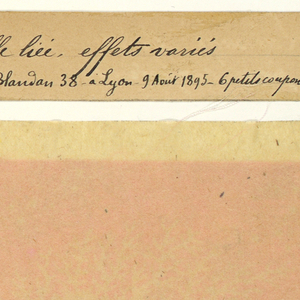 le liée, effets variés
Blandan 38 - à Lyon - 9 Août 1895 - 6 petits coupon